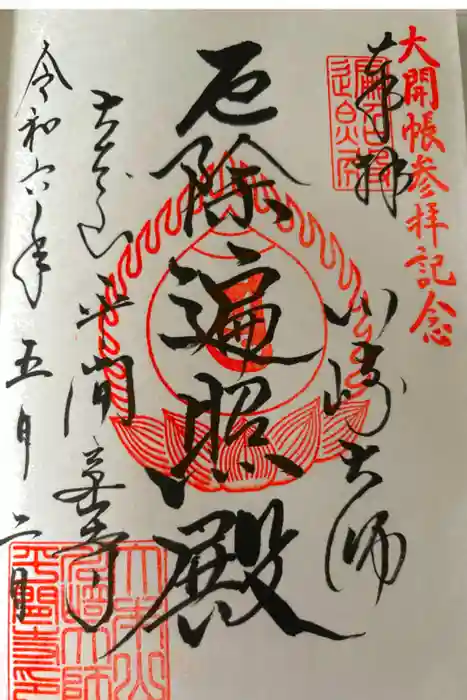 大開帳参拝記念
奉拝
川崎大師
厄除遍照殿
大本山平間寺
令和六年五月二日